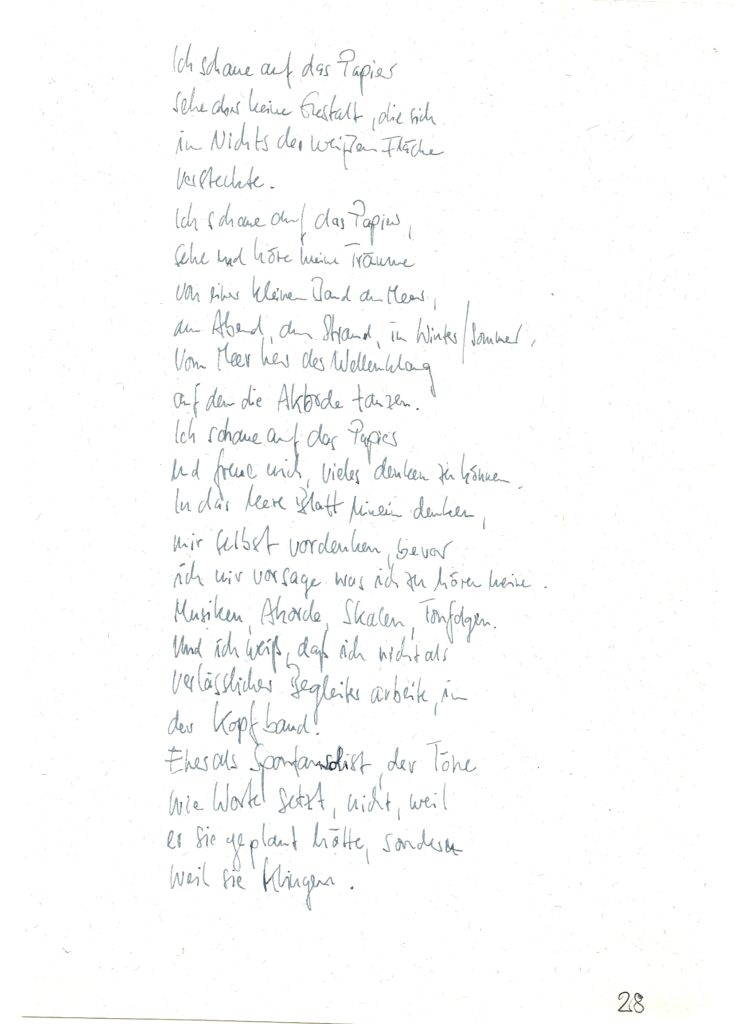 Ich schaue auf das Papier
sehe aber keine Gestalt, die sich
im Nichts der weißen Fläche
versteckte.
Ich schaue auf das Papier,
sehe und höre meine Träume
von einer kleinen Band am Meer,
am Abend, am Strand, im Winter/Sommer,
vom Meer her des Wellenklang
auf dem die Akkorde tanzen.
Ich schaue auf das Papier
und freue mich, vieles denken zu können.
In das leere Blatt hinein denken,
mir selbst vordenken, bevor
ich mir vorsage was ich zu hören meine.
Musiken, Akorde, Skalen, Tonfolgen.
Und ich weiß, daß ich nicht als
verlässlicher Begleiter arbeite, in
der Kopfband.
Eher als Spontansolist, der Töne
wie Worte setzt, nicht, weil
er sie geplant hätte, sondern
weil sie klingen.
28